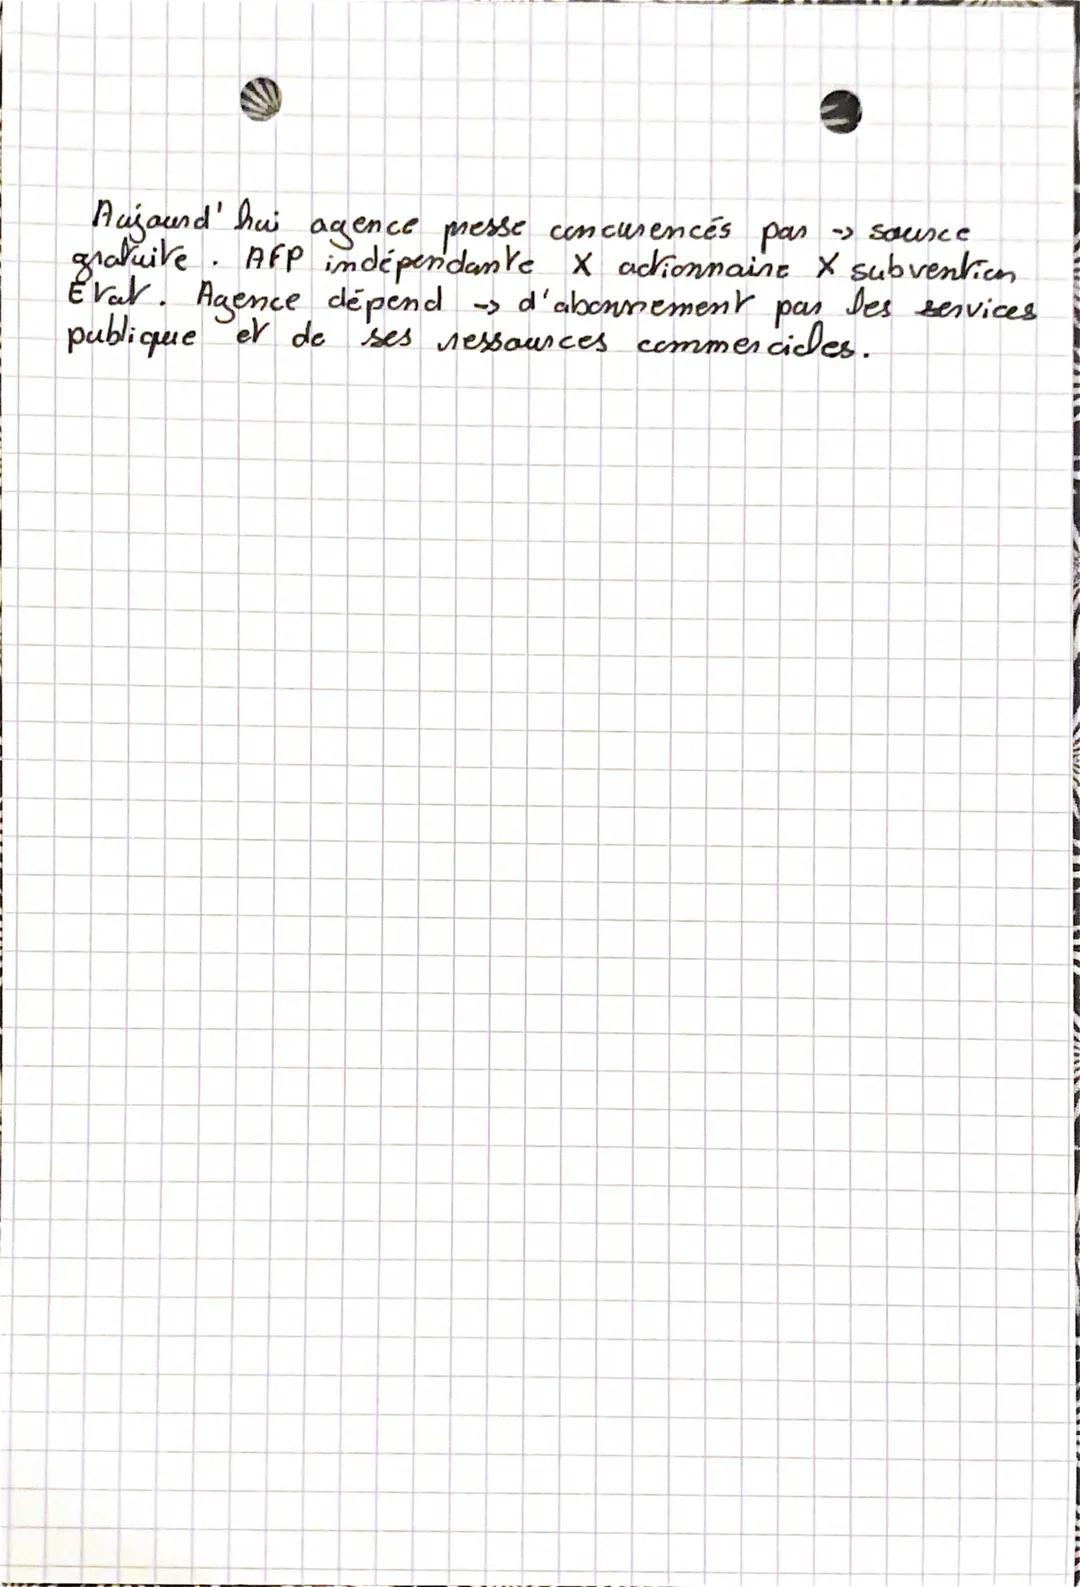 Aujourd'hui agence presse concurencés par -> source
gratuite. AFP indépendante X actionnaire X subvention
État. Agence dépend -> d'abonnement par les services
publique et de ses ressources commerciales.